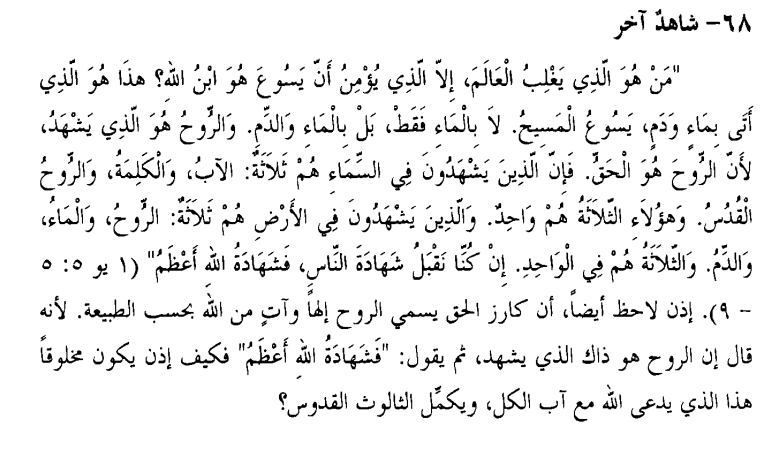 ٦٨- شاهدٌ آخر
"مَنْ هُوَ الَّذِي يَغْلِبُ الْعَالَمَ، إِلاَّ الَّذِي يُؤْمِنُ أَنَّ يَسُوعَ هُوَ ابْنُ اللهِ؟ هذَا هُوَ الَّذِي
أَتَى بِمَاءٍ وَدَمٍ، يَسُوعُ الْمَسِيحُ. لاَ بِالْمَاءِ فَقَطْ، بَلْ بِالْمَاءِ وَالدَّمِ. وَالرُّوحُ هُوَ الَّذِي يَشْهَدُ،
لأَنَّ الرُّوحَ هُوَ الْحَقُّ. فَإِنَّ الَّذِينَ يَشْهَدُونَ فِي السَّمَاءِ هُمْ ثَلاَثَةٌ: الآبُ، وَالْكَلِمَةُ، وَالرُّوحُ
الْقُدُسُ. وَهؤُلاَءِ الثَّلاَثَةُ هُمْ وَاحِدٌ. وَالَّذِينَ يَشْهَدُونَ فِي الأَرْضِ هُمْ ثَلاَثَةٌ: الرُّوحُ، وَالْمَاءُ،
وَالدَّمُ. وَالثَّلاَثَةُ هُمْ فِي الْوَاحِدِ. إِنْ كُنَّا نَقْبَلُ شَهَادَةَ النَّاسِ، فَشَهَادَةُ اللهِ أَعْظَمُ" (١ يو ٥: ٥
– ٩). إذن لاحظ أيضاً، أن كارز الحق يسمي الروح إلهاً وآتٍ من الله بحسب الطبيعة. لأنه
قال إن الروح هو ذاك الذي يشهد، ثم يقول: "فَشَهَادَةُ اللهِ أَعْظَمُ" فكيف إذن يكون مخلوقاً
هذا الذي يدعى الله مع آب الكل، ويكمِّل الثالوث القدوس؟